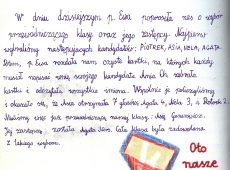 W dniu dzisiejszym p. Ewa poprosiła nas o wybór
przewodniczącego klasy oraz jego zastępcy. Najpierw
wybraliśmy następujących kandydatów: PIOTREK, ASIA, NELA, AGATA.
Potem, p. Ewa rozdała nam czyste kartki, na których każdy
musiał napisać imię swojego kandydata. Ania Ch. zebrała
kartki i odczytała wszystkie imiona. Wspólnie je policzyliśmy
i okazało się, że Asia otrzymała 7 głosów, Agata 4, Nela 3, a Piotrek 2.
Mieliśmy więc już przewodniczącą naszej klasy: Asię
Jej zastępcą, została Agata. Cała klasa była zadowolona
z takiego wyboru.
Oto
nasze